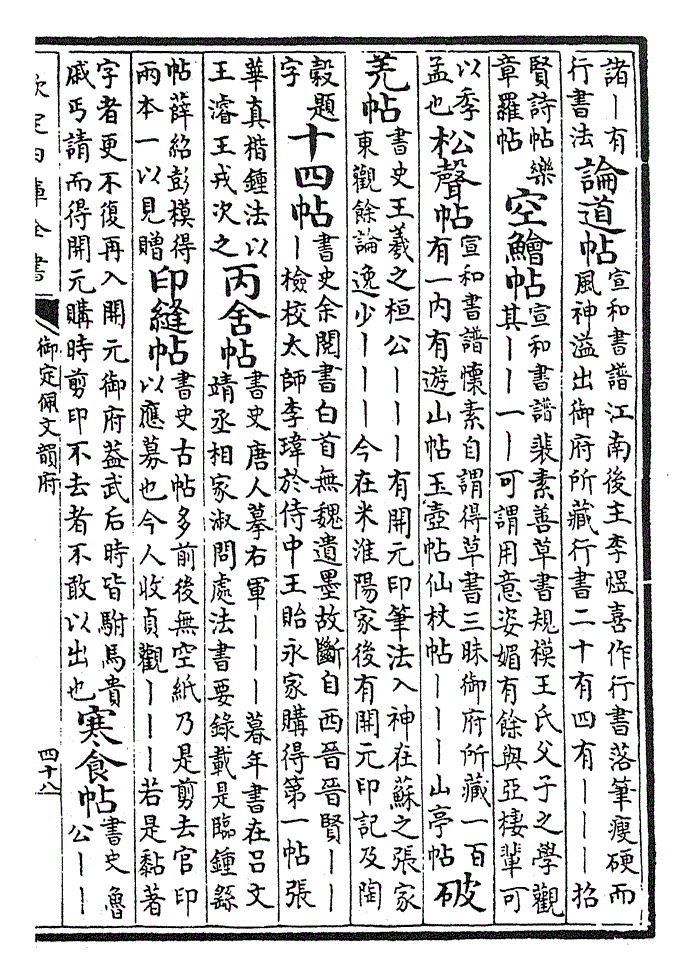 諸丨有
行書法
論道帖
宣和書譜江南後主李煜喜作行書落筆瘦硬而
風神溢出御府所藏行書二十有四有丨丨丨招
賢詩帖樂
章羅帖
空鱠帖
宣和書譜裴素善草書規模王氏父子之學觀
其丨丨一丨丨可謂用意姿媚有餘與亞棲輩可
以季
孟也
松聲帖
宣和書譜懷素自謂得草書三昧御府所藏一百
有一内有遊山帖玉壺帖仙杖帖丨丨丨山亭帖
破
羌帖
書史王羲之桓公丨丨丨有開元印筆法入神在蘇之張家
東觀餘論逸少丨丨丨今在米淮陽家後有開元印記及陶
穀題
字
十四帖
書史余閱書白首無魏遺墨故斷自西晉晉賢丨丨
丨檢校太師李瑋於侍中王貽永家購得第一帖張
華真楷鍾法以
王濬王戎次之
丙舍帖
書史唐人摹右軍丨丨丨暮年書在呂文
靖丞相家淑問處法書要錄載是臨鍾繇
帖薛紹彭模得
兩本一以見贈
印縫帖
書史古帖多前後無空紙乃是剪去官印
以應募也今人收貞觀丨丨丨若是黏著
字者更不復再入開元御府葢武后時皆駙馬貴
戚丐請而得開元購時剪印不去者不敢以出也
寒食帖
書史魯
公丨丨
欽定四庫全書
御定佩文韻府
四十八